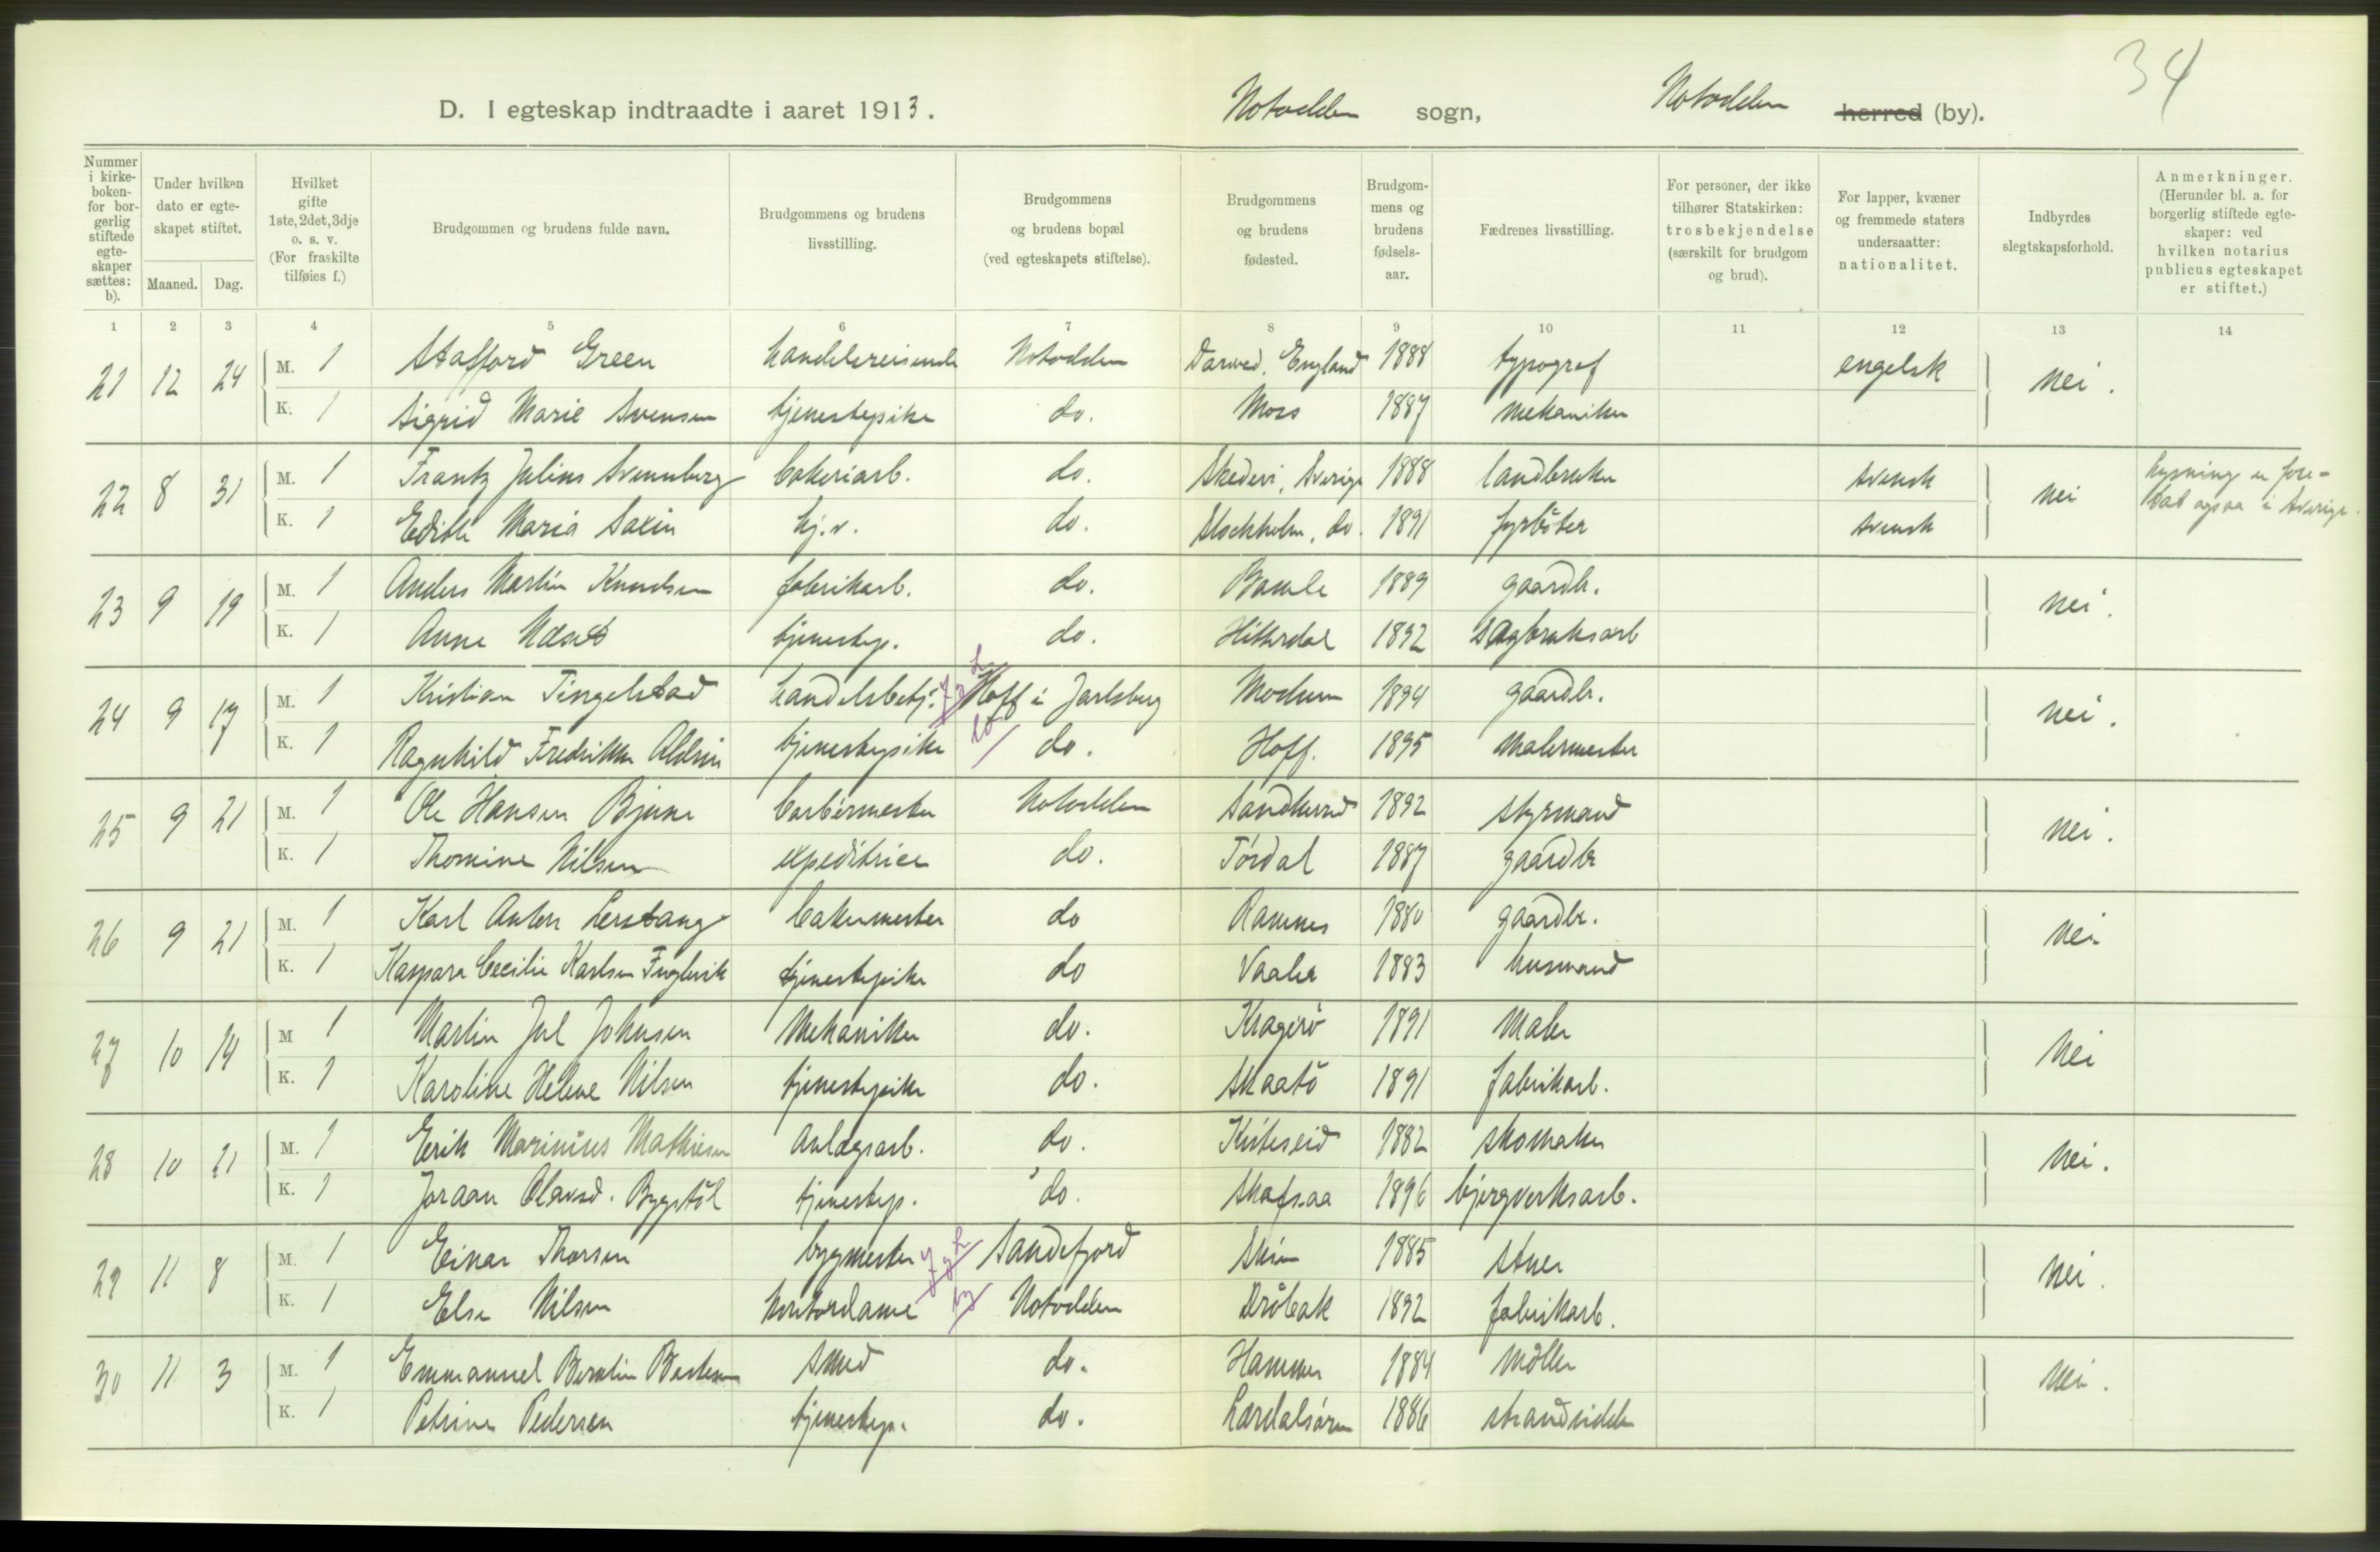 34
D. I egteskap indtraadte i aaret 1913. Notodden sogn, Notodden herred (by).
Nummer i kirke-boken- for bor-gerlig stiftede egte-skaper sættes: b). Under hvilken dato er egte-skapet stiftet. Maaned. Dag. Hvilket gifte 1ste, 2det, 3dje o. s. v. (For fraskilte tilføies f.) Brudgommen og brudens fulde navn. Brudgommens og brudens livsstilling. Brudgommens og brudens bopæl (ved egteskapets stiftelse). Brudgommens og brudens fødested. Brudgom-mens og brudens fødsels-aar. Fædrenes livsstilling. For personer, der ikke tilhører Statskirken: trosbekjendelse (særskilt for brudgom og brud). For lapper, kvæner og fremmede staters undersaatter: nationalitet. Indbyrdes slegtskapsforhold. Anmerkninger. (Herunder bl. a. for borgerlig stiftede egte-skaper: ved hvilken notarius publicus egteskapet er stiftet.)
1 2 3 4 5 6 7 8 9 10 11 12 13 14
21 12 24 M. 1 Stafford Green handelsreisende Notodden England 1888 typograf engelsk nei.
K. 1 Sigrid Marie Svensen tjenestepike do. Moss 1887 mekaniker
22 8 31 M. 1 Frantz Julius Svennberg bakeriarb. do. Skedevi, Sverige 1888 landbruker svensk nei lysning er fore-
K. 1 Edith Maria Saxin hj. v. do. Stockholm, do. 1891 fyrböter svensk tat ogsaa i Sverige.
23 9 19 M. 1 Anders Martin Knudsen fabrikarb. do. Bamle 1889 gaardbr. nei.
K. 1 Anne Næset tjenestep. do. Hitterdal 1892 sagbruksarb
24 9 17 M. 1 Kristian Tingelstad handelsbetj. Hoff i Jarlsberg Modum 1894 gaardbr. nei.
K. 1 Ragnhild Fredrikke Aldrin tjenestepike do. Hoff. 1895 malermester
25 9 21 M. 1 Ole Hansen Bjune barbermester Notodden Sandherred 1892 styrmand nei.
K. 1 Thomine Nilsen expeditrice do. Tördal 1887 gaardbr
26 9 21 M. 1 Karl Anton Lerstang bakermester do Ramnes 1880 gaardbr. nei
K. 1 Kaspara Cecilie Karlsen Fuglevik tjenestepike do Vaaler 1883 husmand
27 10 14 M 1 Martin Jul Johnsen mekaniker do. Kragerö 1891 maler nei
K. 1 Karoline Helene Nilsen tjenestepike do. Skaatö 1891 fabrikarb.
28 10 21 M. 1 Erik Marinius Mathisen anlægsarb. do. Kviteseid 1882 skomaker nei.
K. 1 Joraan Olavsd. Bygstöl tjenestep. do. Skafsaa 1896 bjergverksarb.
29 11 8 M. 1 Einar Thorsen bygmester Sandefjord Skien 1885 nei.
K. 1 Else Nilsen kontordame Notodden Dröbak 1892 fabrikarb.
30 11 3 M. 1 Emmanuel Berntin Bertesen smed do. Hammer 1884 möller nei.
K. 1 Petrine Pedersen tjenestep. do. Lærdalsören 1886 strandsidder